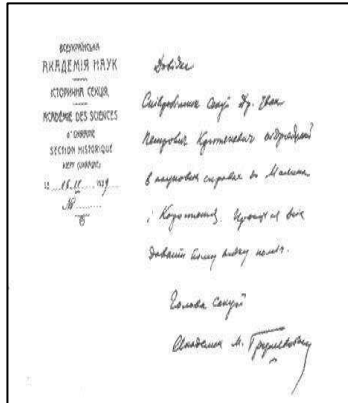 ВСЕУКРАЇНСЬКА
АКАДЕМІЯ НАУК
ІСТОРИЧНА СЕКЦІЯ
ACADÉMIE DES SCIENCES
d'UKRAINE
SECTION HISTORIQUE
KEFF (UKRAINE)
№
Довідка
Співробітник Секції Др. Іван
Петрович відряджений
в наукових справах до Малина
і Коростеня.
давати йому всяку поміч.
Голова Секції
Академик М. Грушевський